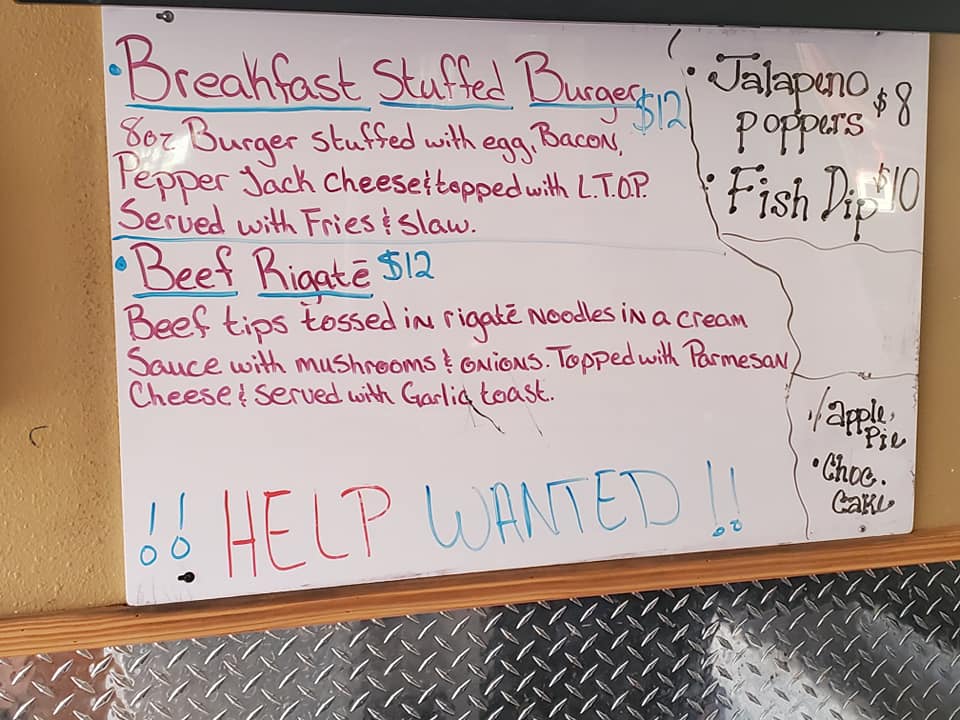 • Breakfast Stuffed Burger $12
8oz Burger stuffed with egg, Bacon,
Pepper Jack Cheese & topped with L.T.O.P.
Served with Fries & Slaw.
• Beef Rigatē $12
Beef tips tossed in rigatē Noodles in a cream
Sauce with mushrooms & onions. Topped with Parmesan
Cheese & Served with Garlic toast.
!! HELP WANTED !!
• Jalapeno
poppers $8
• Fish Dip $10
• apple
Pie
• Choc.
Cake